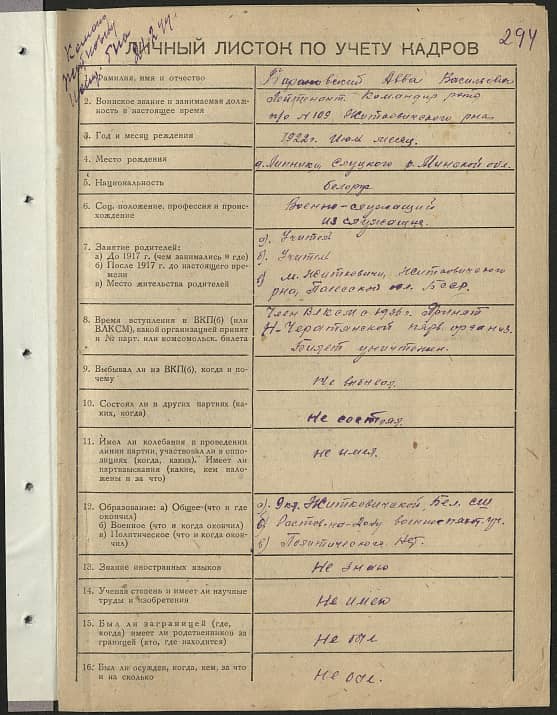 294
24.2.44.
ЛИЧНЫЙ ЛИСТОК ПО УЧЕТУ КАДРОВ
1. Фамилия, имя и отчество
Василевич
2. Воинское звание и занимаемая долж-
ность в настоящее время
Лейтенант. Командир роты
п/о №109 Житковичского р-на
3. Год и месяц рождения
1922г. Июль месяц.
4. Место рождения
Слуцкого р. Минской обл.
5. Национальность
белорус
6. Соц. положение, профессия и проис-
хождение
Военно-служащий
из служащих.
7. Занятие родителей:
а) До 1917 г. (чем занимались и где)
б) После 1917 г. до настоящего вре-
мени
в) Место жительства родителей
а). Учителя
б). Учителя
в) м. Житковичи, Житковичского
р-на, Полесской обл. БССР.
8. Время вступления в ВКП(б) (или
ВЛКСМ), какой организацией принят
и № парт. или комсомольск. билета
Член ВЛКСМ с 1936 г. Принят
перв. организ.
Билет уничтожен.
9. Выбывал ли из ВКП(б), когда и по-
чему
Не выбывал.
10. Состоял ли в других партиях (ка-
ких, когда)
Не состоял.
11. Имел ли колебания в проведении
линии партии, участвовал ли в оппо-
зициях (когда, каких). Имеет ли
партвзыскания (какие, кем нало-
жены и за что)
Не имел.
12. Образование: а) Общее (что и где
окончил)
б) Военное (что и когда окончил)
в) Политическое (что и когда окон-
чил)
а). Житковичской, Бел. СШ
б) Ростов-на-Дону
в). Политического Нет.
13. Знание иностранных языков
Не знаю
14. Ученая степень и имеет ли научные
труды и изобретения
Не имею
15. Был ли заграницей (где,
когда) имеет ли родственников за
границей (кто, где находится)
Не был
16. Был ли осужден, когда, кем, за что
и на сколько
Не был.